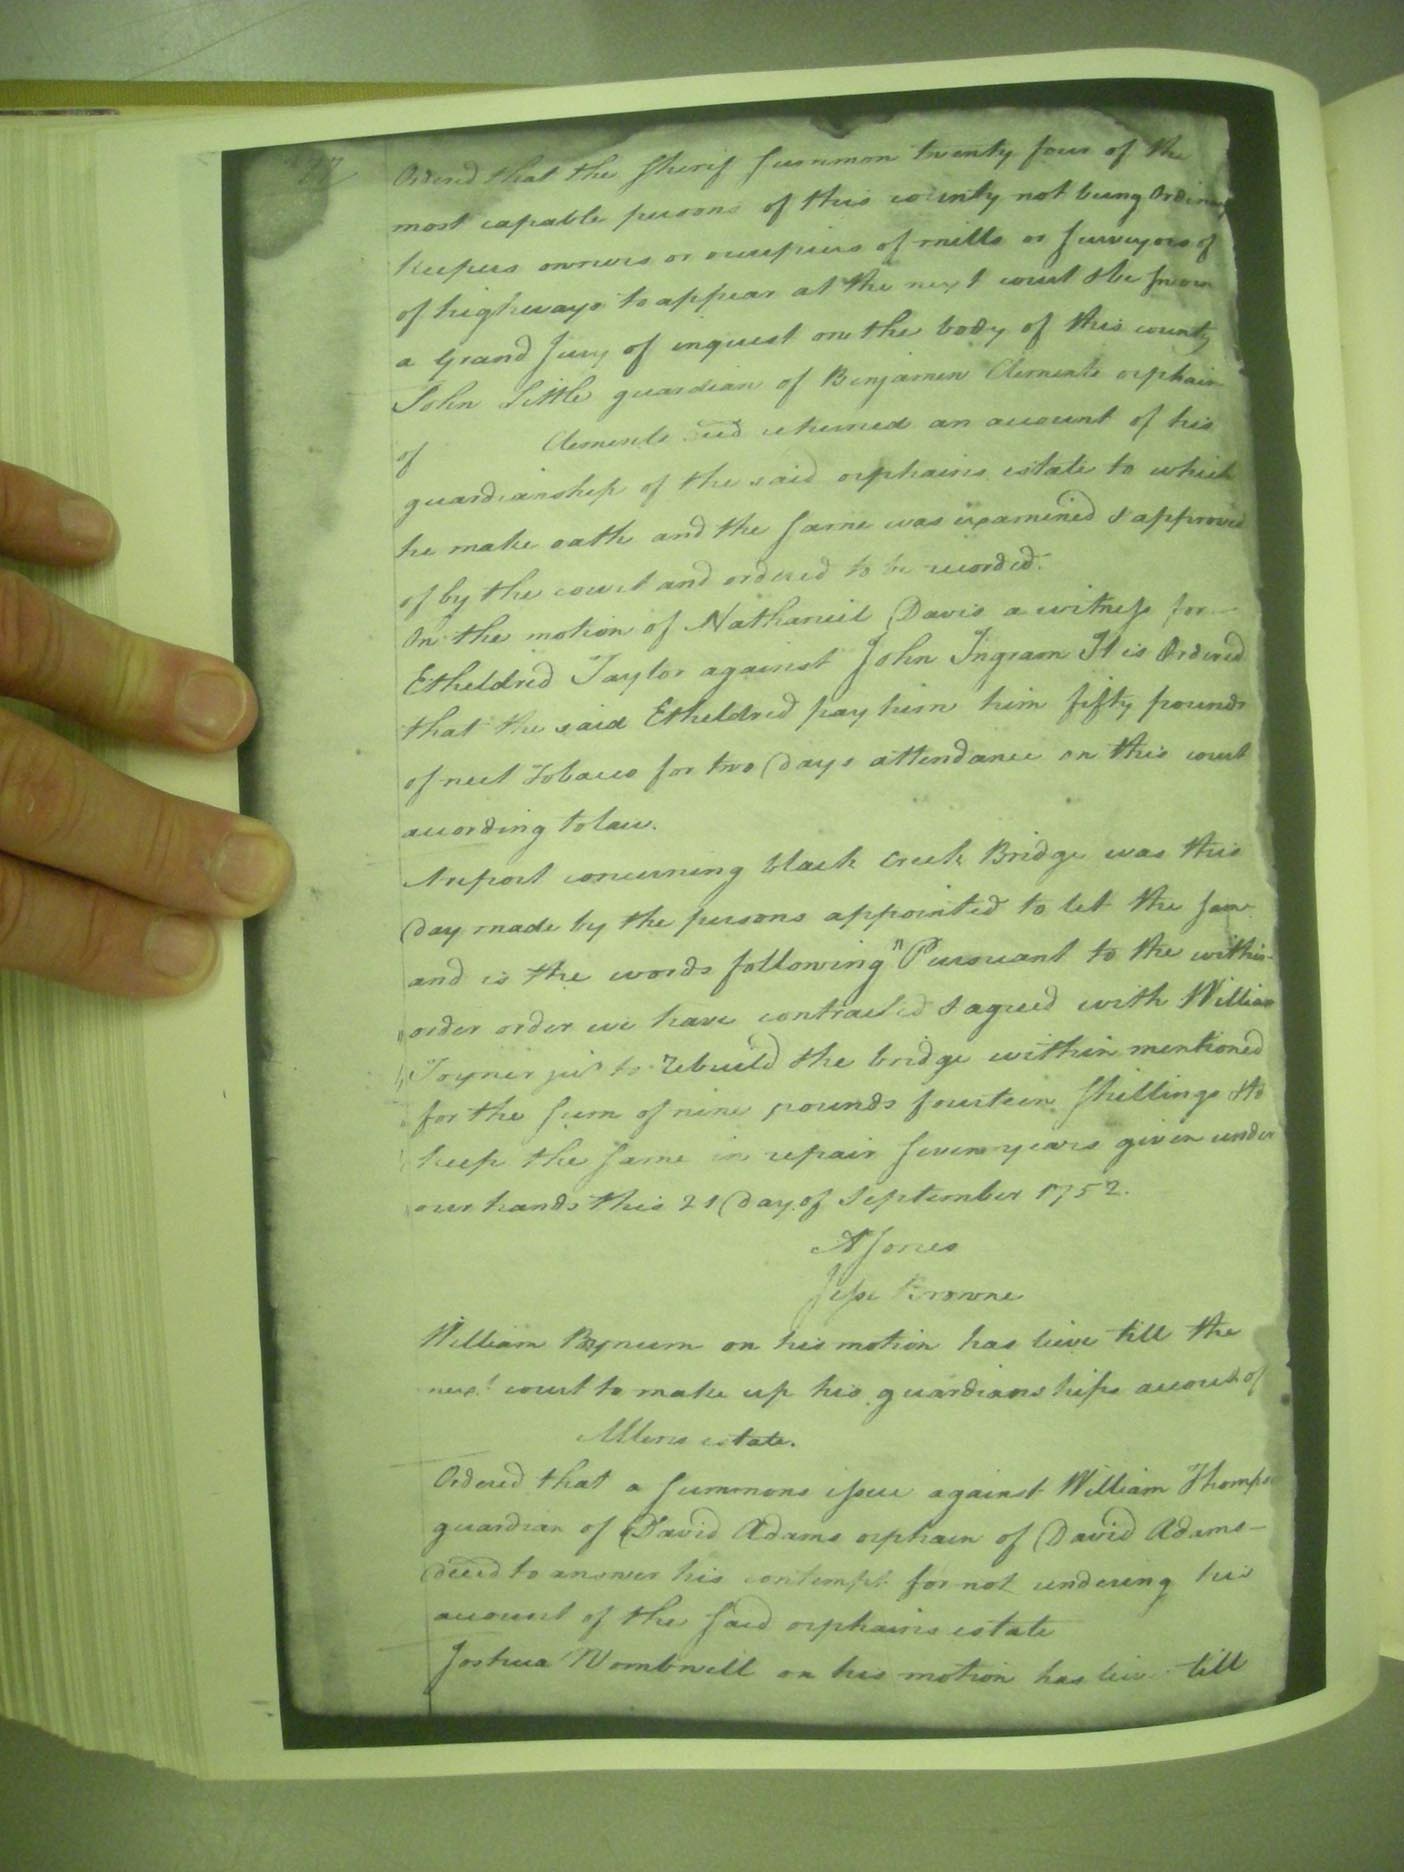 Ordered that the Sherif Summon twenty four of the
most capable persons of this county not being Ordinary
keepers owners or occupiers of mills or Surveyors of
of highways to appear at the next court &be Sworn
a Grand Jury of inquest on the body of this county
John Little guardian of Benjamen Clements orphain
of Clements returned an account of his
guardianship of the said orphains estate to which
he make oath and the Same was examined & approved
of by the court and ordered to be recorded.
On the motion of Nathaniel Davis a witness for
Etheldred Taylor against John Ingram It is Ordered
that the said Etheldred pay him him fifty pounds
of neet Tobacco for two Days attendance on this court
according to law.
A report concerning black creek Bridge was this
Day made by the persons appointed to let the Same
and is the words following "Pursuant to the within
" order order we have contracted & agreed with William
" Joyner jur to rebuild the bridge within mentioned
for the Sum of nine pounds fourteen Shillings &to
keep the Same in repair Seven years given under
our hands this 21 Day of September 1752.
A Jones
Jesse Browne
William Bynum on his motion has lieve till the
next court to make up his guardianships account of
Allens estate.
Ordered that a Summons issue against William Thompson
guardian of David Adams orphain of David Adams
deced to answer his contempt for not rendering his
account of the Said orphains estate
Joshua Wombwell on his motion has till